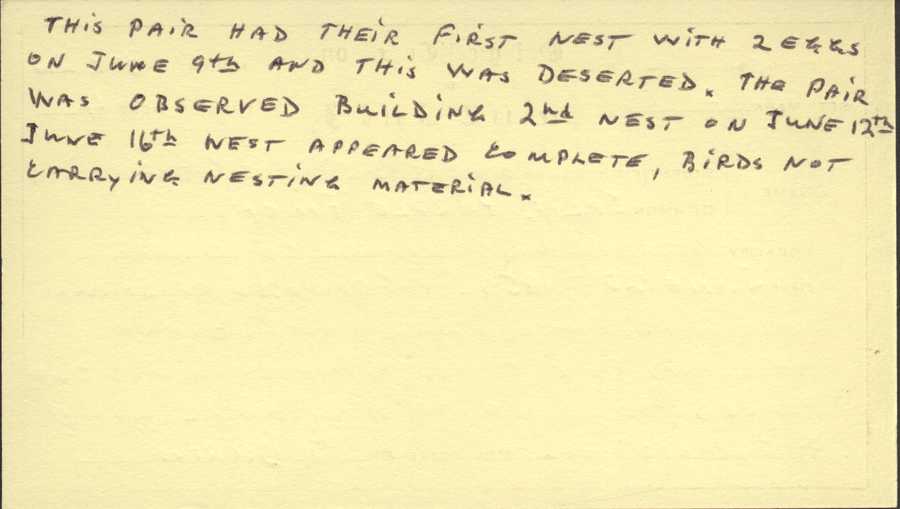 THIS PAIR HAD THEIR FIRST NEST WITH 2 EGGS
ON JUNE 9th AND THIS WAS DESERTED. THE PAIR
WAS OBSERVED BUILDING 2nd NEST ON JUNE 12th
JUNE 16th NEST APPEARED COMPLETE, BIRDS NOT
CARRYING NESTING MATERIAL.